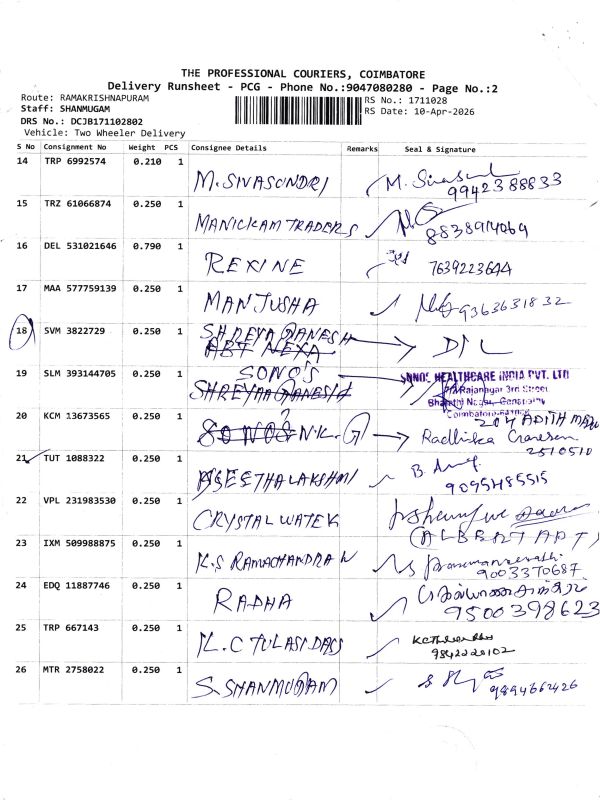 THE PROFESSIONAL COURIERS, COIMBATORE
Delivery Runsheet - PCG - Phone No.:9047080280 - Page No.:2
Route: RAMAKRISHNAPURAM
Staff: SHANMUGAM
DRS No.: DCJB171102802
Vehicle: Two Wheeler Delivery
RS No.: 1711028
RS Date: 10-Apr-2026
S No Consignment No Weight PCS Consignee Details Remarks Seal & Signature
14 TRP 6992574 0.210 1
M. SIVASONDRI M. Sivasund
9942388833
15 TRZ 61066874 0.250 1
MANICKAM TRADERS
8838914069
16 DEL 531021646 0.790 1
REXINE 7639223644
17 MAA 577759139 0.250 1
MANJUSHA 9363631832
18 SVM 3822729 0.250 1
SHREYA GANESH
ABT NEXA D/L
19 SLM 393144705 0.250 1
SONO'S SONOS HEALTHCARE INDIA PVT. LTD
SHREYAA GANESH Rajanagar 3rd Street
Coimbatore
20 KCM 13673565 0.250 1
204 ADITH
N.K. G Radhika
2510510
21 TUT 1088322 0.250 1
ASEETHALAKSHMI B.
9095485515
22 VPL 231983530 0.250 1
CRYSTAL WATER
ALBERT APT
23 IXM 509988875 0.250 1
K.S RAMACHANDRAN
9003370687
24 EDQ 11887746 0.250 1
RADHA
9500398623
25 TRP 667143 0.250 1
K. C TULASI DASS
9842220102
26 MTR 2758022 0.250 1
S. SHANMUGAM
9894662426